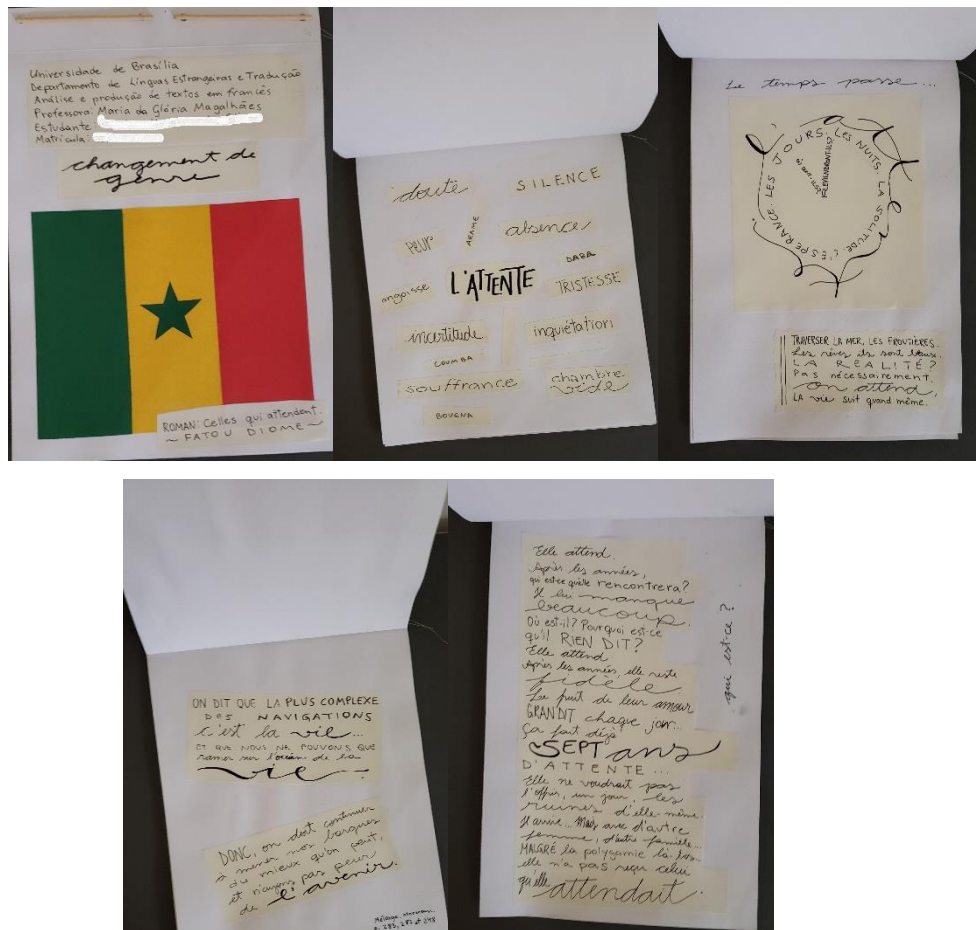 Universidade de Brasília
Departamento de Línguas Estrangeiras e Tradução
Análise e produção de textos em francês
Professora: Maria da Glória Magalhães
Estudante
Matrícula:
changement de
genre
ROMAN: Celles qui attendent.
~ FATOU DIOME ~
doute
SILENCE
ARAME
absence
PEUR
DABA
angoisse
L'ATTENTE
TRISTESSE
incertitude
inquiétation
COUMBA
souffrance
chambre
vide
BOUGNA
Le temps passe...
LES JOURS. LES NUITS. LA SOLITUDE. L'ESPERANCE.
TRAVERSER LA MER, LES FRONTIÈRES.
Les rêves ils sont beaux.
LA REALITÉ?
Pas nécessairement.
on attend,
LA vie suit quand même.
ON DIT QUE LA PLUS COMPLEXE
DES NAVIGATIONS
c'est la vie...
ET QUE NOUS NE POUVONS QUE
ramer sur l'océan de la
vie
DONC, on doit continuer
à mener nos barques
du mieux qu'on peut,
et n'ayons pas peur
de l'avenir.
p. 283, 287 et 248
Elle attend.
Après les années,
qui est-ce qu'elle rencontrera?
Il lui manque
beaucoup.
Où est-il? Pourquoi est-ce
qu'il RIEN DIT?
Elle attend.
Après les années, elle reste
fidèle.
Le fruit de leur amour
GRANDIT chaque jour...
Ça fait déjà
SEPT ans
D'ATTENTE...
Elle ne voudrait pas
l'offrir, un jour, les
ruines d'elle-même.
Il arrive... Mais avec d'autre
femme, d'autre famille...
MALGRÉ la polygamie là-bas
elle n'a pas reçu celui
qu'elle attendait.
qui est-ce?